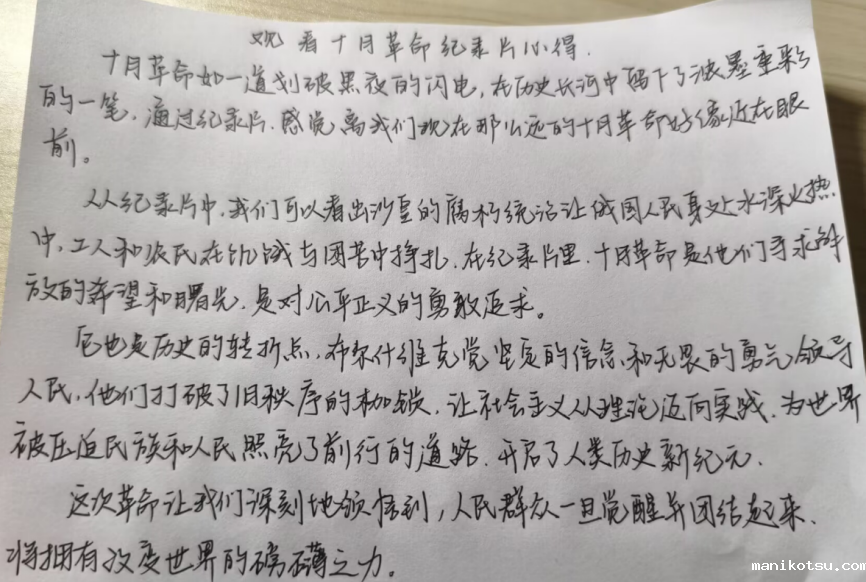 观看十月革命纪录片心得.
十月革命如一道划破黑夜的闪电,在历史长河中留下了浓墨重彩
的一笔.通过纪录片.感觉离我们现在那么远的十月革命好像近在眼
前。
从纪录片中,我们可以看出沙皇的腐朽统治让俄国人民身处水深火热
中,工人和农民在饥饿与困苦中挣扎.在纪录片里.十月革命是他们寻求解
放的希望和曙光,是对公平正义的勇敢追求。
它也是历史的转折点,布尔什维克党坚定的信念、和无畏的勇气领导
人民,他们打破了旧秩序的枷锁,让社会主义从理论迈向实践.为世界
被压迫民族和人民照亮了前行的道路.开启了人类历史新纪元.
这次革命让我们深刻地领悟到,人民群众一旦觉醒并团结起来、
将拥有改变世界的磅礴之力。
manikotsu.com